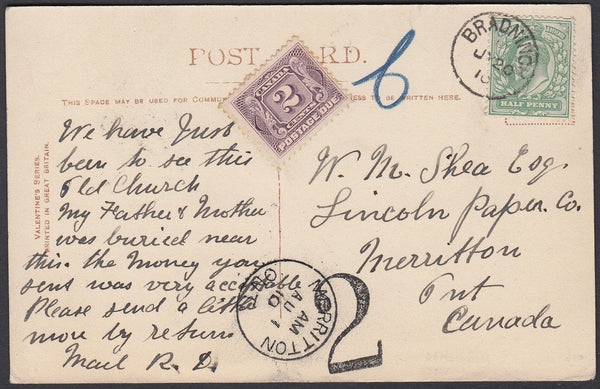 POST CARD.
THIS SPACE MAY BE USED FOR COMMUN
ESS TO BE WRITTEN HERE.
VALENTINE'S SERIES.
PRINTED IN GREAT BRITAIN.
We have Just
been to see this
Old Church
My Father & Mother
was buried near
this. the Money you
sent was very acceptable
Please send a little
more by return
Mail R. D.
CANADA
2
CENTS
POSTAGE DUE
6
BRADNINCH
JY 26
10
HALF PENNY
W. M. Shea Esq.
Lincoln Paper. Co.
Merritton
Ont
Canada
MERRITTON
ONT
AM
AU 1
10
2